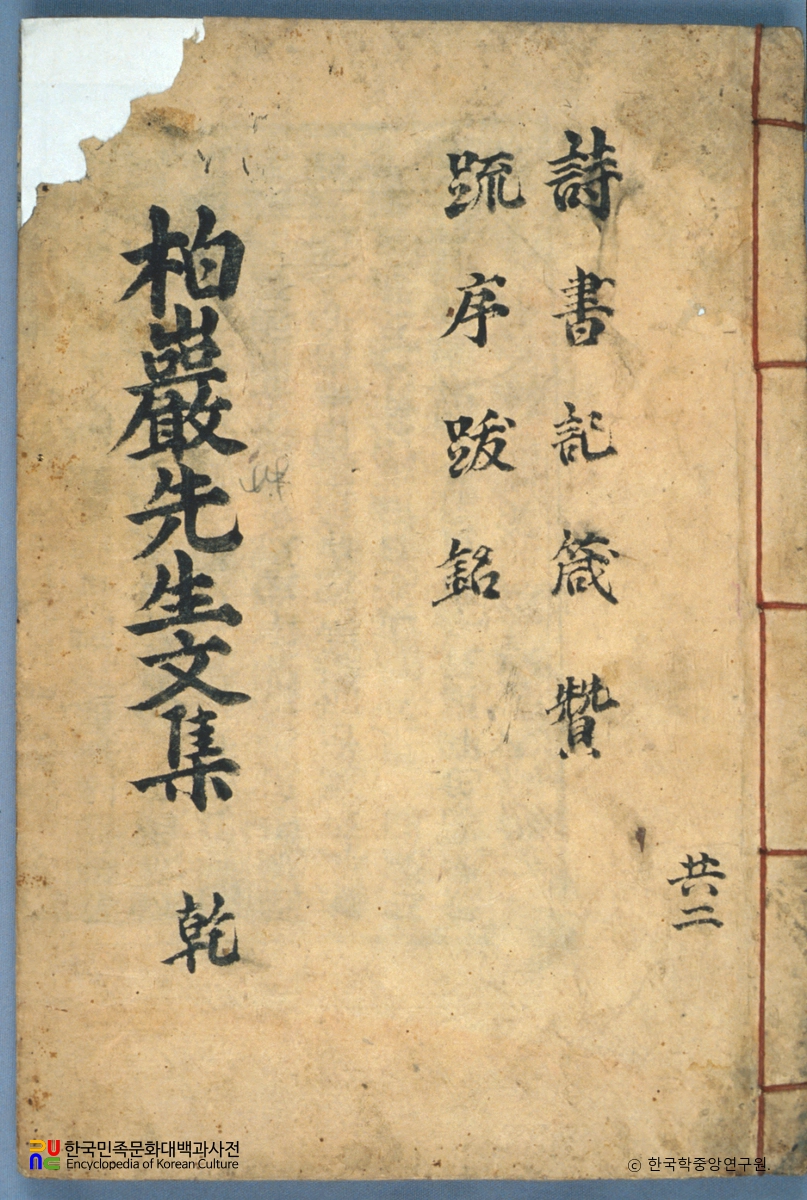 共二
詩書記箴贊
䟽序跋銘
柏巖先生文集 乾
한국민족문화대백과사전
Encyclopedia of Korean Culture
ⓒ 한국학중앙연구원.